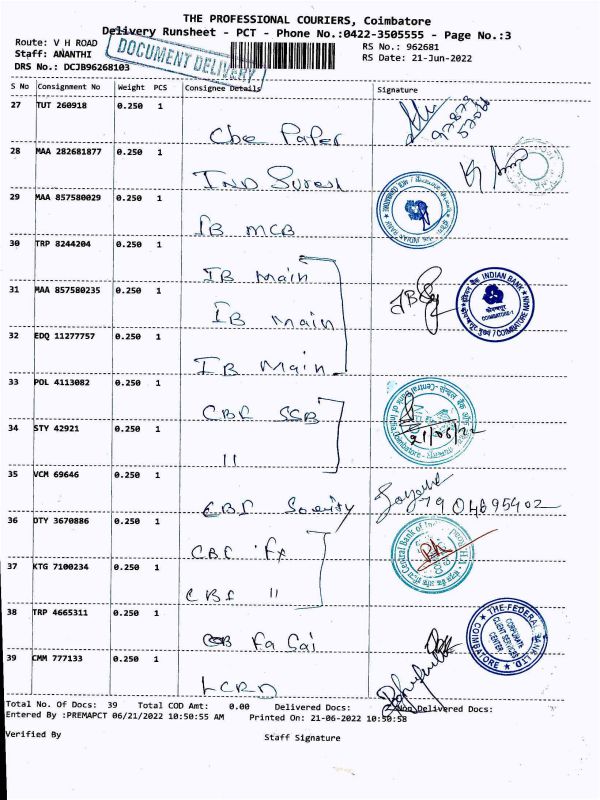 THE PROFESSIONAL COURIERS, Coimbatore
Delivery Runsheet - PCT - Phone No.:0422-3505555 - Page No.:3
Route: V H ROAD
RS No.: 962681
Staff: ANANTHI
RS Date: 21-Jun-2022
DRS No.: DCJB96268103
DOCUMENT DELIVERY
S No Consignment No Weight PCS Consignee Details Signature
27 TUT 260918 0.250 1
Cbe Paper
28 MAA 282681877 0.250 1
IND Suresh
29 MAA 857580029 0.250 1
IB MCB
30 TRP 8244204 0.250 1
IB Main
31 MAA 857580235 0.250 1
IB Main
INDIAN BANK
COIMBATORE-1
COIMBATORE MAIN
32 EDQ 11277757 0.250 1
IB Main
33 POL 4113082 0.250 1
CBI SSB
34 STY 42921 0.250 1
"
21/06/22
35 VCM 69646 0.250 1
CBI
7904695402
36 DTY 3670886 0.250 1
CBI Fx
Central Bank of India
37 KTG 7100234 0.250 1
CBI "
38 TRP 4665311 0.250 1
Fa Sai
THE FEDERAL BANK LTD.
CORPORATE
CLIENT SERVICES
CENTER
COIMBATORE
39 CMM 777133 0.250 1
LCRD
Total No. Of Docs: 39 Total COD Amt: 0.00 Delivered Docs: Non Delivered Docs:
Entered By :PREMAPCT 06/21/2022 10:50:55 AM Printed On: 21-06-2022 10:50:58
Verified By
Staff Signature